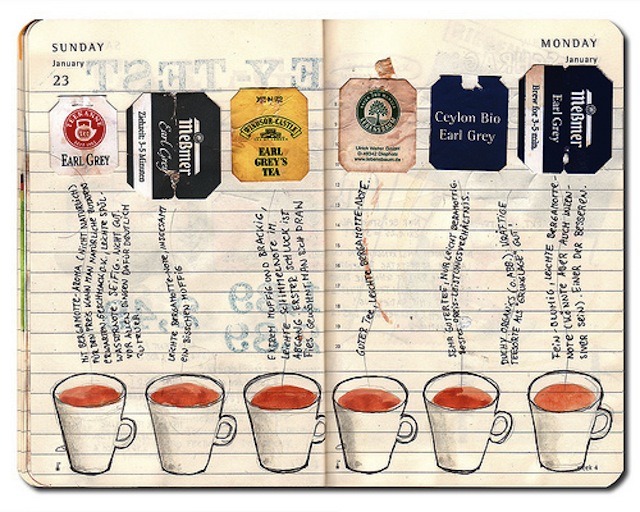 SUNDAY
January
23
MONDAY
January
Y-TEST
TEEKANNE
EARL GREY
Meßmer
Earl Grey
Ziehzeit: 3-5 Minuten
WINDSOR-CASTLE
EARL
GREY'S
TEA
Ulrich Walter GmbH
D-49342 Diepholz
www.lebensbaum.de
Ceylon Bio
Earl Grey
Meßmer
Earl Grey
Brew for 3-5 min.
MIT BERGAMOTTE-AROMA (NICHT NATÜRLICH)
FÜR DEN PREIS KANN MAN NATÜRLICHE
ERWARTEN. GESCHMACK O.K., LEICHTE SPÜL-
WASSERNOTE, SEIFIG. NICHT GUT,
VOR ALLEN DINGEN DAFÜR DEUTLICH
ZU TEUER.
LEICHTE BERGAMOTTE-NOTE, INSGESAMT
EIN BISSCHEN MUFFIG
ETWAS MUFFIG UND BRACKIG,
LEICHTE SCHIMMELNOTE IM
ABGANG. ERSTER SCHLUCK IST
FIES. GEWÖHNT MAN SICH DRAN
GUTER TEE, LEICHTE BERGAMOTTE-NOTE.
SEHR GUTER TEE, NUR LEICHT BERGAMOTTIG.
BESTES PREIS-LEISTUNGSVERHÄLTNIS.
KRÄFTIGE
TEESORTE ALS GRUNDLAGE. GUT!
FEIN-BLUMIG, LEICHTE BERGAMOTTE-
NOTE (KÖNNTE ABER AUCH INTEN-
SIVER SEIN). EINER DER BESSEREN.
week 4